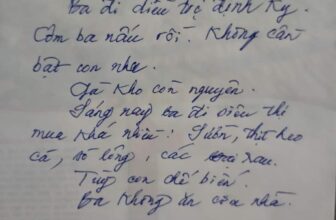 Ba đi điều trị định kỳ.
Cơm ba nấu rồi. Không cần
bật con nha.
Gà kho còn nguyên.
Sáng nay ba đi siêu thị
mua khá nhiều: Sườn, thịt heo
cá, sò lông, các rau.
Tùy con chế biến.
Ba không ăn cơm nhà.